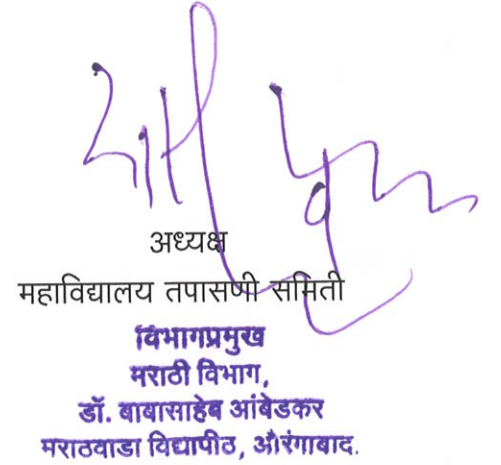 अध्यक्ष
महाविद्यालय तपासणी समिती
विभागप्रमुख
मराठी विभाग,
डॉ. बाबासाहेब आंबेडकर
मराठवाडा विद्यापीठ, औरंगाबाद.